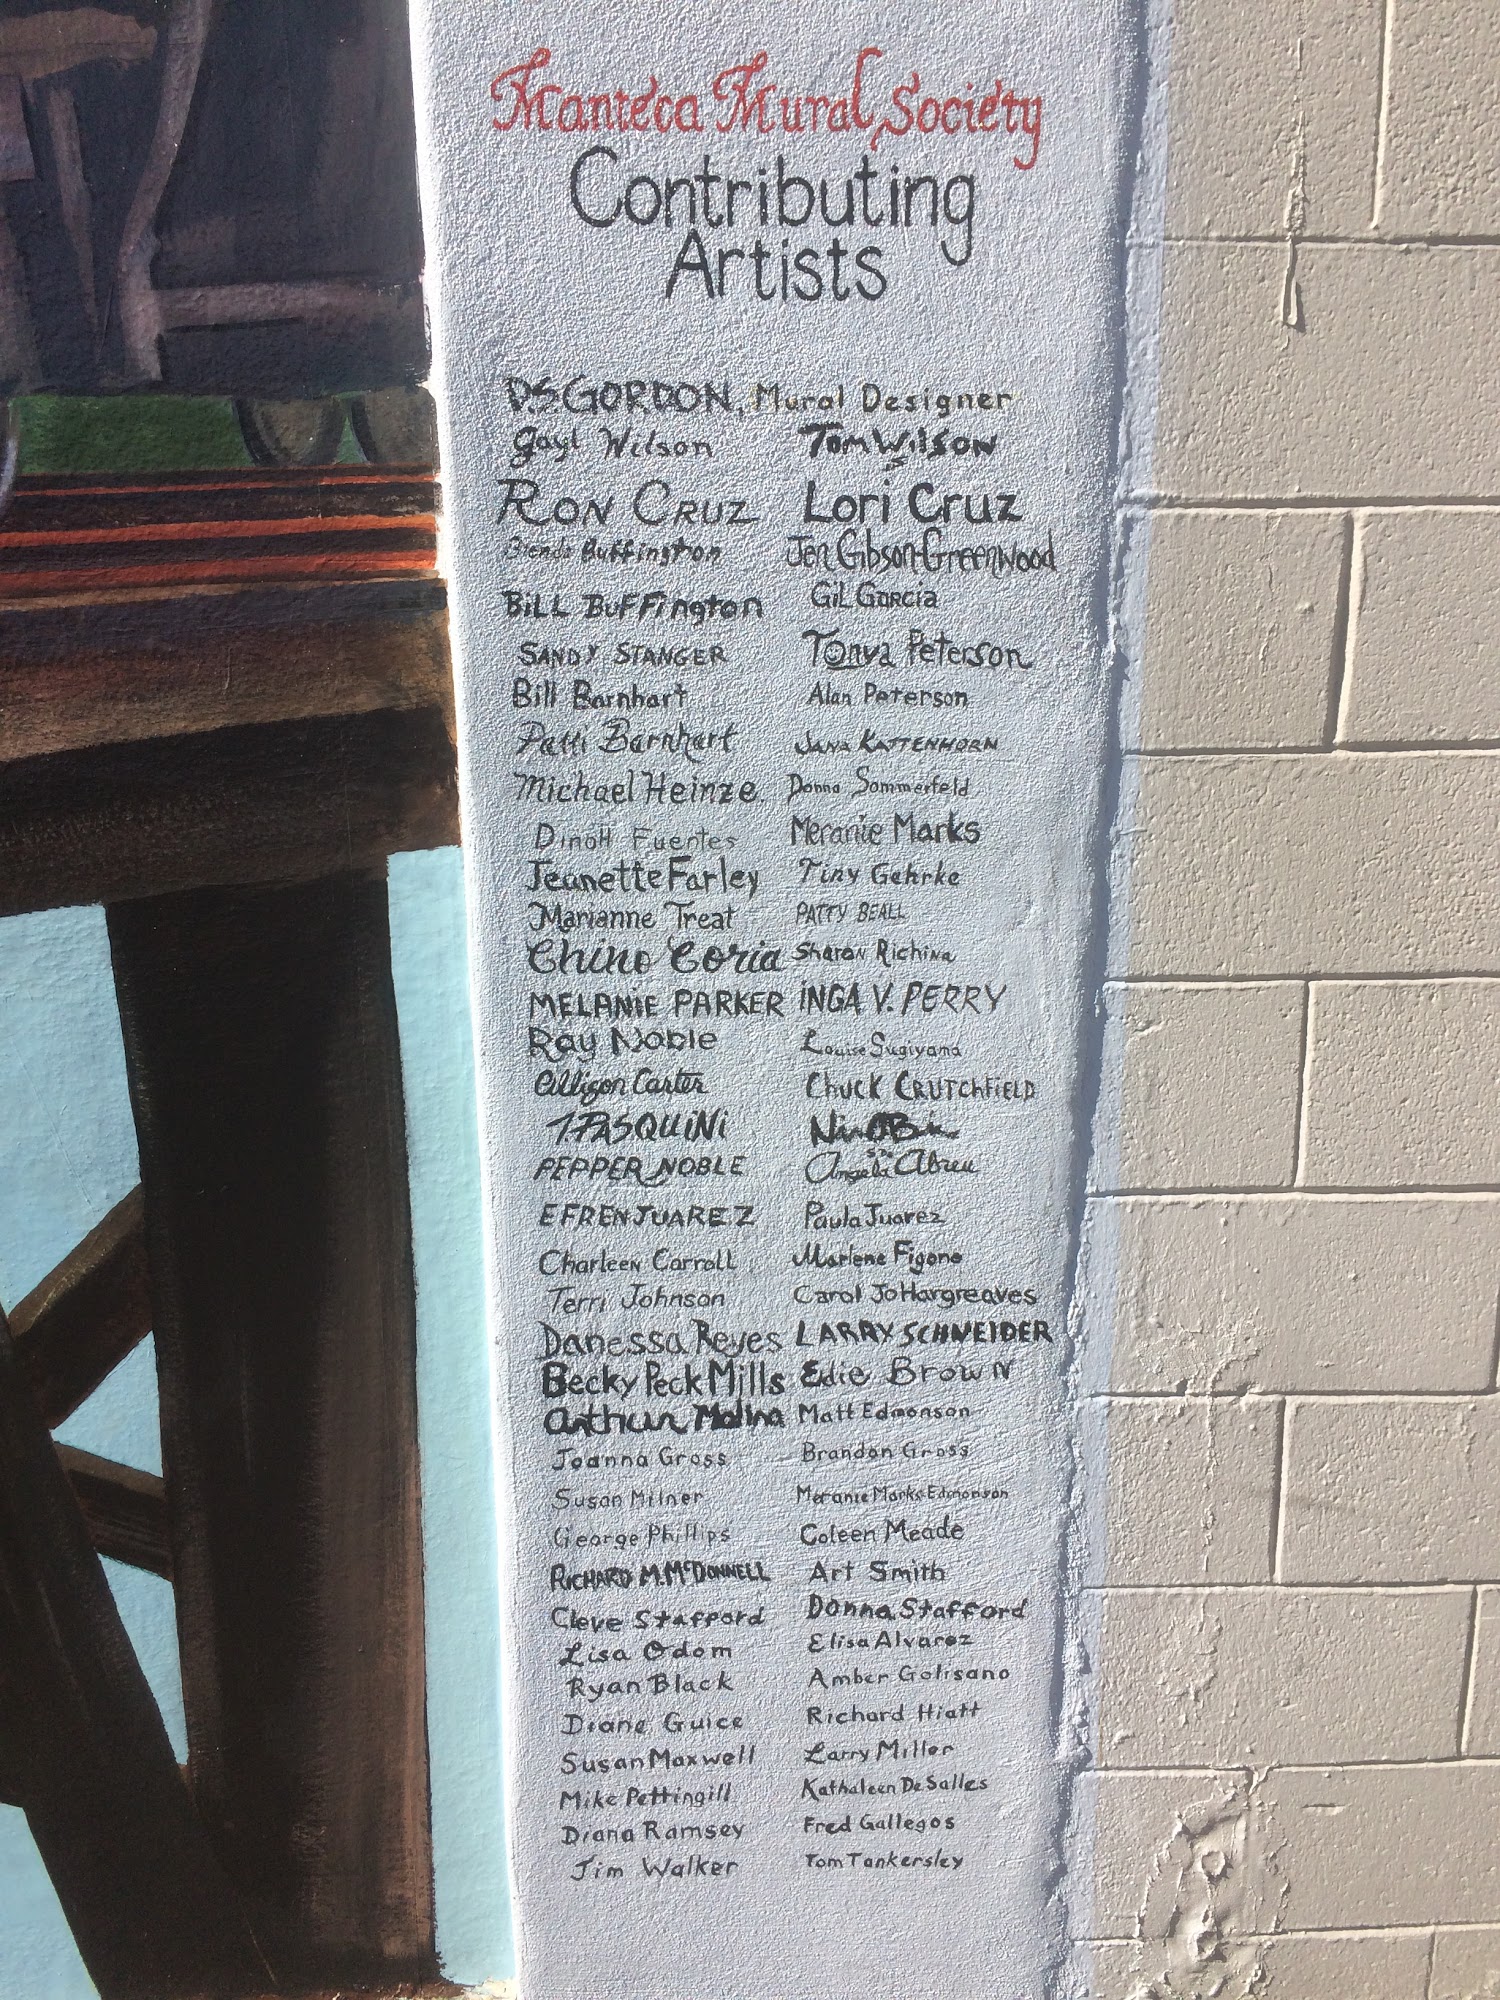 Manteca Mural Society
Contributing
Artists
D.S. GORDON, Mural Designer
Gayl Wilson Tom Wilson
RON CRUZ Lori Cruz
Brenda Buffington Jen Gibson-Greenwood
BiLL BuFFington GiL Garcia
SANDY STANGER Tonya Peterson
Bill Barnhart Alan Peterson
Patti Barnhart JANA KATTENHORN
Michael Heinze Donna Sommerfeld
Dinoh Fuentes Meranie Marks
Jeanette Farley Tiny Gehrke
Marianne Treat PATTY BEALL
Chino Coria Sharon Richina
MELANIE PARKER INGA V. PERRY
Ray Noble Louise Sugiyama
Allison Carter CHUCK CRUTCHFIELD
T. PASQUINI
PEPPER NOBLE Angela Abreu
EFREN JUAREZ Paula Juarez
Charleen Carroll Marlene Figone
Terri Johnson Carol Jo Hargreaves
Danessa Reyes LARRY SCHNEIDER
Becky Peck Mills Edie Brown
Arthur Molina Matt Edmonson
Joanna Gross Brandon Gross
Susan Milner Meranie Marks-Edmonson
George Phillips Coleen Meade
RICHARD M. McDONNELL Art Smith
Cleve Stafford Donna Stafford
Lisa Odom Elisa Alvarez
Ryan Black Amber Golisano
Diane Guice Richard Hiatt
Susan Maxwell Larry Miller
Mike Pettingill Kathaleen DeSalles
Diana Ramsey Fred Gallegos
Jim Walker Tom Tankersley